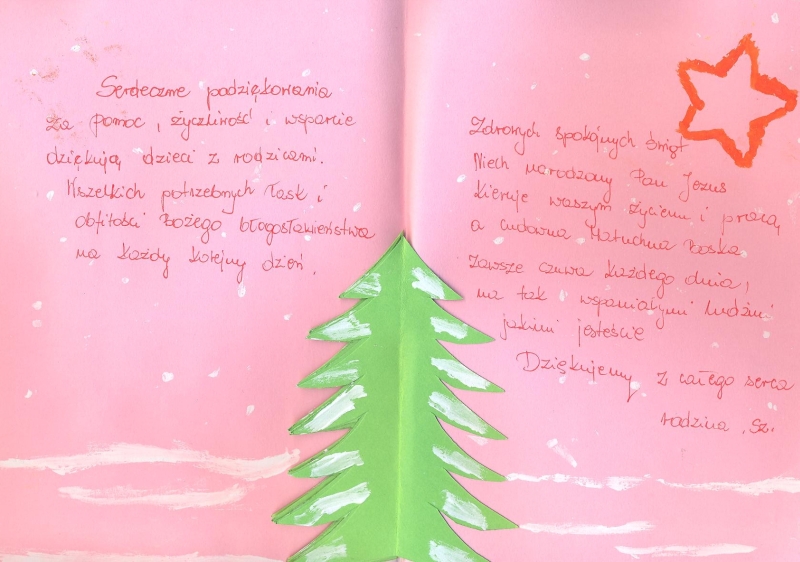 Serdeczne podziękowania
za pomoc, życzliwość i wsparcie
dziękują dzieci z rodzicami.
Wszelkich potrzebnych łask i
obfitości Bożego błogosławieństwa
na każdy kolejny dzień.
Zdrowych spokojnych świąt
Niech narodzony Pan Jezus
kieruje waszym życiem i pracą
a cudowna Matuchna Boska
zawsze czuwa każdego dnia,
na tak wspaniałymi ludźmi
jakimi jesteście
Dziękujemy z całego serca
rodzina Sz.